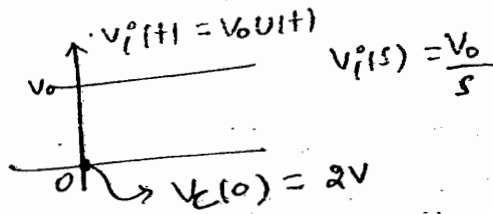 Vi(t) = V₀U(t)
Vi(s) = V₀/s
V₀
0
Vc(0) = 2V